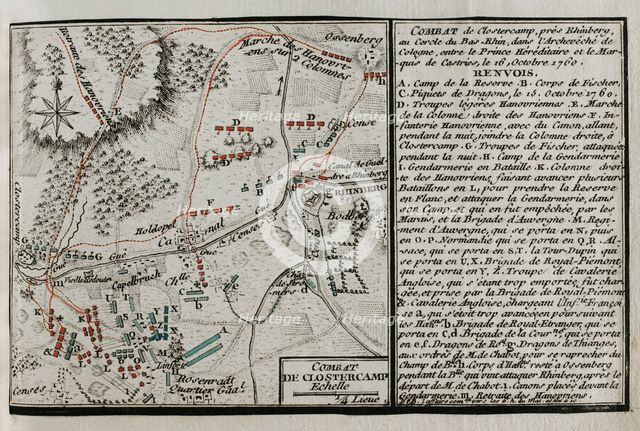 Marche des Hanovri-
ens sur 2
Colomnes
Ossenberg
H
E
D
D
D
D
Cense
C
C
Canal de Guel
dre a Rhinberg
RHINBERG
Holdopel
F
Canal
Cense
Clostercamp
G
G
Gué
Gué
Vieille Redoute
Capelbruch
Rosenradt
Quartier Gāāl
Censes
COMBAT
DE CLOSTERCAMP
Echelle
1/4 Lieue
COMBAT de Clostercamp, prés Rhinberg,
au Cercle du Bas-Rhin, dans l'Archevêché de
Cologne, entre le Prince Héréditaire et le Mar-
quis de Castries, le 16, Octobre 1760.
RENVOIS.
A. Camp de la Reserve. B. Corps de Fischer,
C. Piquets de Dragons, le 15. Octobre 1760.
D. Troupes légeres Hanovriennes. Æ. Marche
de la Colonne droite des Hanovriens F. In-
fanterie Hanovrienne, avec du Canon, allant,
pendant la nuit, joindre la Colonne droite, à
Clostercamp. G. Troupes de Fischer, attaquées
pendant la nuit. H. Camp de la Gendarmerie
I. Gendarmerie en Bataille. K. Colonne droi-
te des Hanovriens, faisant avancer plusieurs
Bataillons en L, pour prendre la Reserve
en Flanc, et attaquer la Gendarmerie, dans
son Camp, et qui en fut empêchée par les
Marais, et la Brigade d'Auvergne. M. Regi-
ment d'Auvergne, qui se porta en N, puis
en O. P. Normandie qui se porta en Q, R. Al-
sace, qui se porta en S, T. La Tour-Dupin qui
se porta en U, X. Brigade de Royal-Piémont,
qui se porta en Y, Z. Troupes de Cavalerie
Angloise, qui s'étant trop emportée, fut char-
gée, et prise par la Brigade de Royal-Piémont
&. Cavalerie Angloise, chargeant l'Inf.ie Françoi
se a, qui s'étoit trop avancée en poursuivant
les b. Brigade de Royal-Etranger, qui se
porta en C, d. Brigade de la qui se porta
en e, f. Dragons de Dragons de Thianges,
aux ordres de M. de Chabot, pour se raprocher du
Champ de h. Corps resté à Ossenberg
pendant la qui vint attaquer Rhinberg, après le
départ de M. de Chabot. l. Canons placés devant la
Gendarmerie. m. Retraite des Hanovriens.